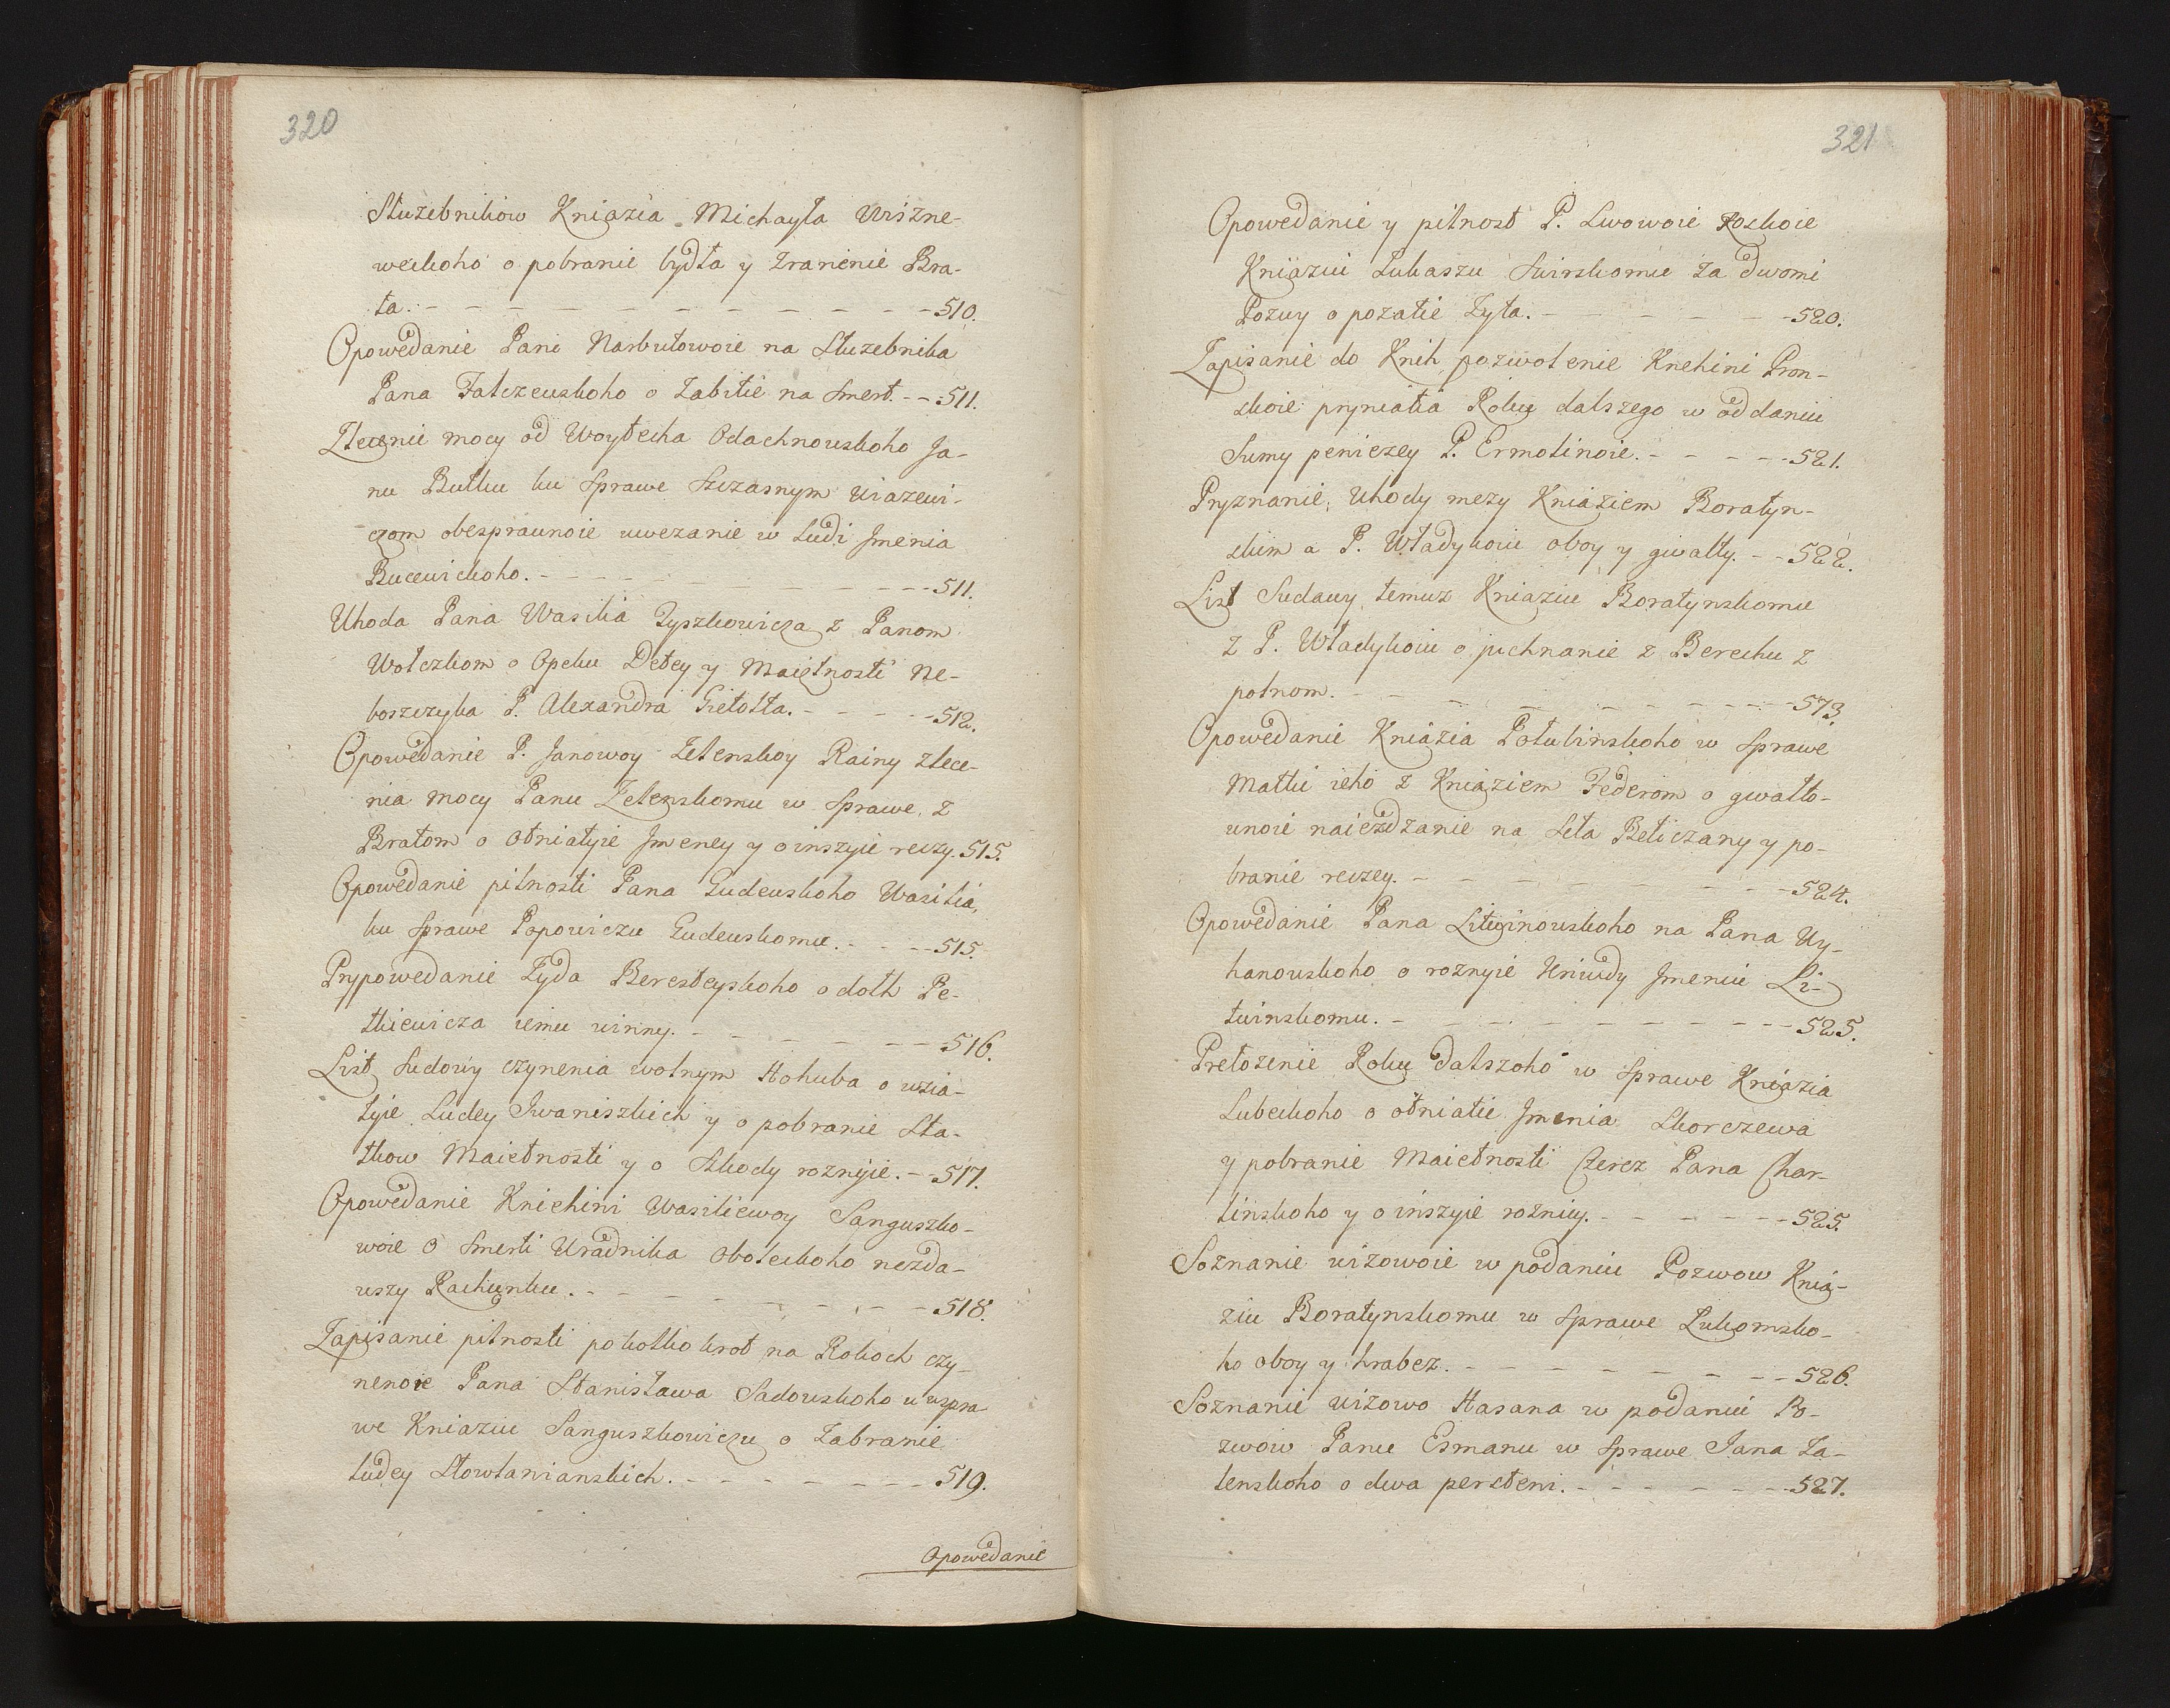 320
Służebnikow Kniazia Michayła Wiszne-
weckoho o pobranie bydła y zranenie Bra-
ta. - - - - - - - - - - 510.
Opowedanie Pani Narbutowoie na Służebnika
Pana Falczewskoho o Zabitie na Smert. - - 511.
Zlecenie mocy od Woytecha Odachnowskoho Ja-
nu Butku ku Sprawe Szczasnym Wiazewi-
czom obesprawnoie uwezanie w Ludi Jmenia
Bucewickoho. - - - - - - - - 511.
Uhoda Pana Wasilia Tyszkowicza z Panom
Wolczkom o Opeku Detey y Maiętnosti Ne-
boszczyka P. Alexandra Gietołta. - - - - - 512.
Opowedanie P. Janowoy Zelenskoy Rainy zlece-
nia mocy Panu Zelenskomu w Sprawe z
Bratom o otniatyie Jmeney y o inszyie reczy. 515.
Opowedanie pilnosti Pana Gudewskoho Wasilia,
ku Sprawe Popowiczu Gudewskomu. - - - - 515.
Prypowedanie Żyda Beresteyskoho o dolh Pe-
tkiewicza iemu winny. - - - - - - - 516.
List Sudowy czynenia wolnym Hohuba o wzia-
tyie Ludey Jwaniszkich y o pobranie Sta-
tkow Maietnosti y o Szkody roznyie. - - 517.
Opowedanie Kniehini Wasiliewoy Sanguszko-
woie o Smerti Uradnika Oboleckoho nezda-
wszy Rachunku. - - - - - - - - 518.
Zapisanie pilnosti po kolkokrot na Rokoch czy-
nenoie Pana Stanisława Sadowskoho w spra
we Kniaziu Sanguszkowiczu o Zabranie
ludey Stowłanianskich. - - - - - - - 519.
Opowedanie
321
Opowedanie y pilnost P. Lwowoie Roskoie
Kniaziu Łukaszu Swirskomu za dwomi
Pozwy o pożatie Żyta. - - - - - - - 520.
Zapisanie do Knih pozwolenie Knehini Pron-
skoie pryniatia Roku dalszego w oddaniu
Sumy peniezey P. Ermolinoie. - - - - - 521.
Pryznanie Uhody meży Kniaziem Boratyn-
skim a P. Władykoiu oboy y gwałty. - - 522.
List Sudawy temuż Kniaziu Boratynskomu
z P. Władykoiu o pichnanie z Berechu z
polnom. - - - - - - - - - 573.
Opowedanie Kniazia Połubinskoho w Sprawe
Matki ieho z Kniaziem Federom o gwałto-
wnoie naieżdzanie na Seła Beliczany y po-
branie reczey. - - - - - - - - - 524.
Opowedanie Pana Litwinowskoho na Pana Uy-
hanowskoho o roznyie Kriwdy Jmeniu Li-
twinskomu. - - - - - - - - - 525.
Prełożenie Roku dalszoho w Sprawe Kniazia
Lubeckoho o otniatie Jmenia Skorczewa
y pobranie Maietnosti Czerez Pana Char-
linskoho y o inszyie roznicy. - - - - - - 525.
Soznanie wizowoie w podaniu Pozwow Knia-
ziu Boratynskomu w Sprawe Łukomsko-
ho oboy y hrabez. - - - - - - - - 526.
Soznanie wizowo Hasana w podaniu Po-
zwow Panu Esmanu w Sprawe Jana Za-
lenskoho o dwa persteni. - - - - - - - 527.